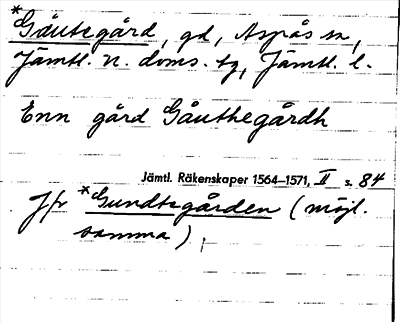 *Gåutegård, gd, Aspås sn,
Jämtl. n. doms. tg, Jämtl. l.
Enn gård Gåuthegårdh
Jämtl. Räkenskaper 1564–1571, II s. 84
Jfr *Gundtsgården (möjl.
samma),